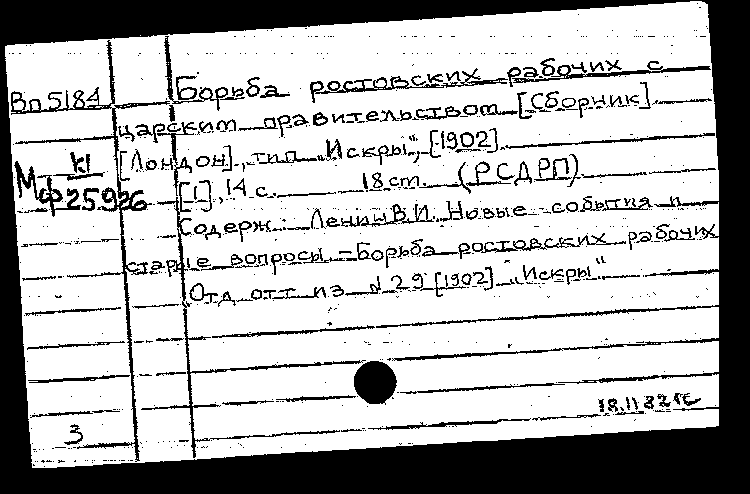 Вп 5184
Борьба ростовских рабочих с
царским правительством [Сборник]
[Лондон], тип „Искры", [1902]
Мф К1 25926
[1], 14 с. 18 ст. (РСДРП)
Содерж.: Ленин В.И. Новые события и
старые вопросы. – Борьба ростовских рабочих
Отд отт из №29 [1902] „Искры"
3